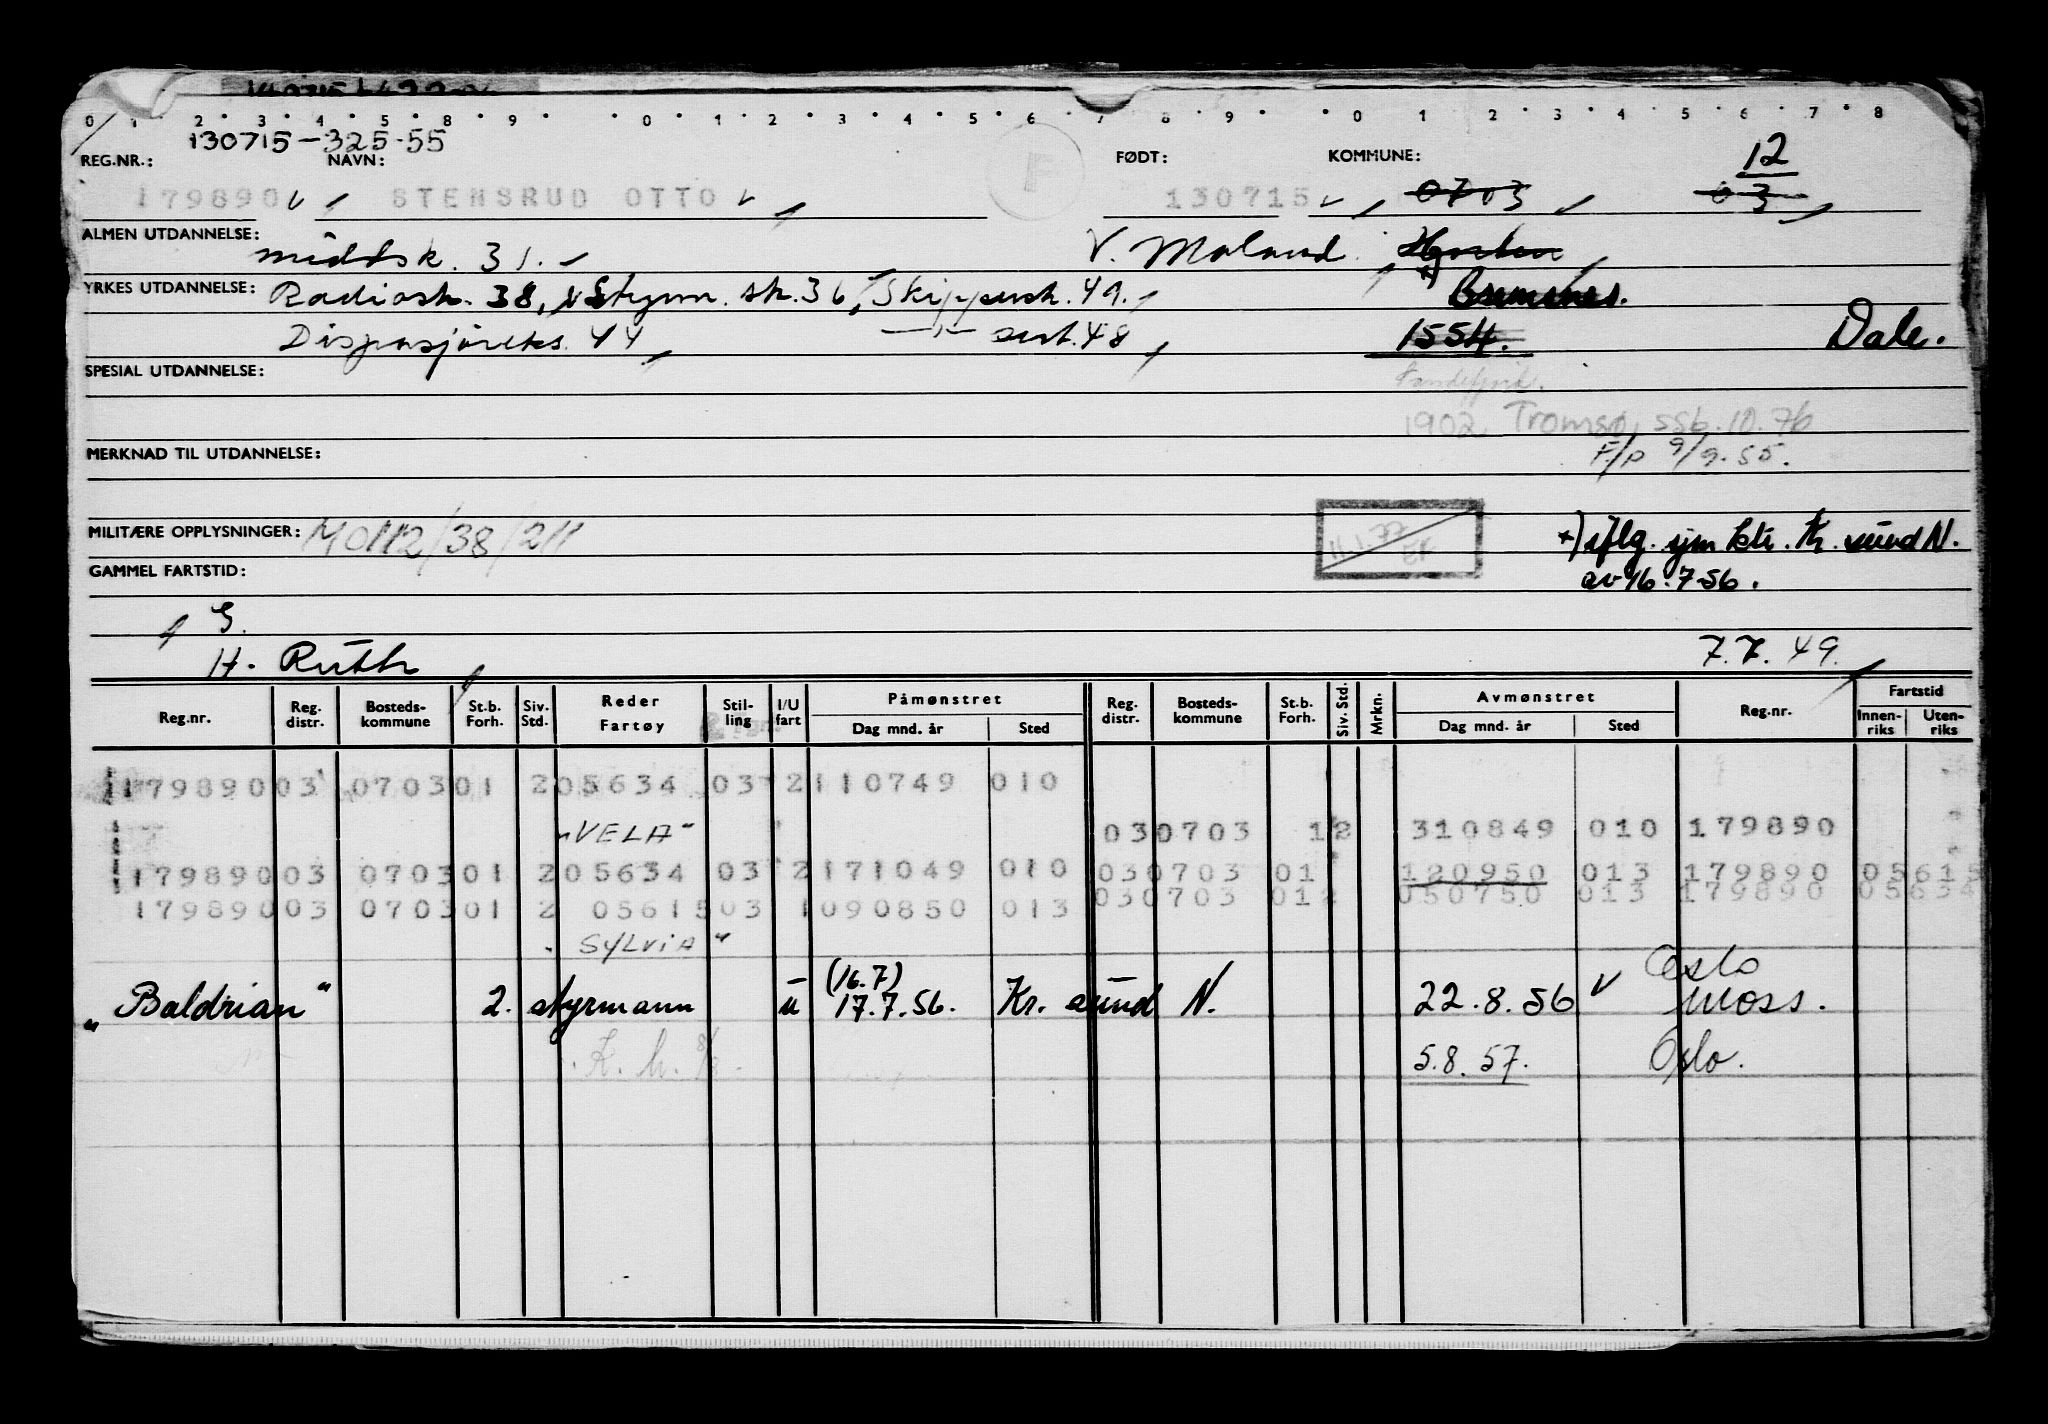 0 1 2 3 4 5 8 9 0 1 2 3 4 5 6 7 8 9 0 1 2 3 4 5 6 7 8
130715-325-55
REG.NR.: NAVN: FØDT: KOMMUNE: 12
179890 STENSRUD OTTO 130715 0703 03
ALMEN UTDANNELSE: middsk. 31. V. Moland
YRKES UTDANNELSE: Radiosk. 38, Styrm. sk. 36, Skippersk. 49. Bremsnes.
Dispasjöreks. 44 —"— sert. 48 1554. Dale.
SPESIAL UTDANNELSE:
1902 Tromsø, ssb. 10.76
MERKNAD TIL UTDANNELSE: F/p 9/9.55.
MILITÆRE OPPLYSNINGER: 40112/38/211 11.1.77 +) iflg. sjm ktr. Kr. sund N.
GAMMEL FARTSTID: av 16.7.56.
G.
H. Ruth 7.7.49.
Reg.nr. Reg. distr. Bosteds-kommune St.b. Forh. Siv. Std. Reder Fartøy Stil-ling I/U fart Påmønstret Dag mnd. år Sted Reg. distr. Bosteds-kommune St.b. Forh. Siv. Std. Mrkn. Avmønstret Dag mnd. år Sted Reg.nr. Fartstid Innen-riks Uten-riks
179890 03 0703 01 2 05634 03 2 110749 010
"VELA" 030703 12 310849 010 179890
179890 03 0703 01 2 05634 03 2 171049 010 030703 01 120950 013 179890 05615
179890 03 0703 01 2 05615 03 1 090850 013 030703 012 050750 013 179890 05634
"SYLVIA" Oslo
"Baldrian" 2. styrmann u (16.7) 17.7.56. Kr. sund N. 22.8.56 Moss.
5.8.57. Oslo.